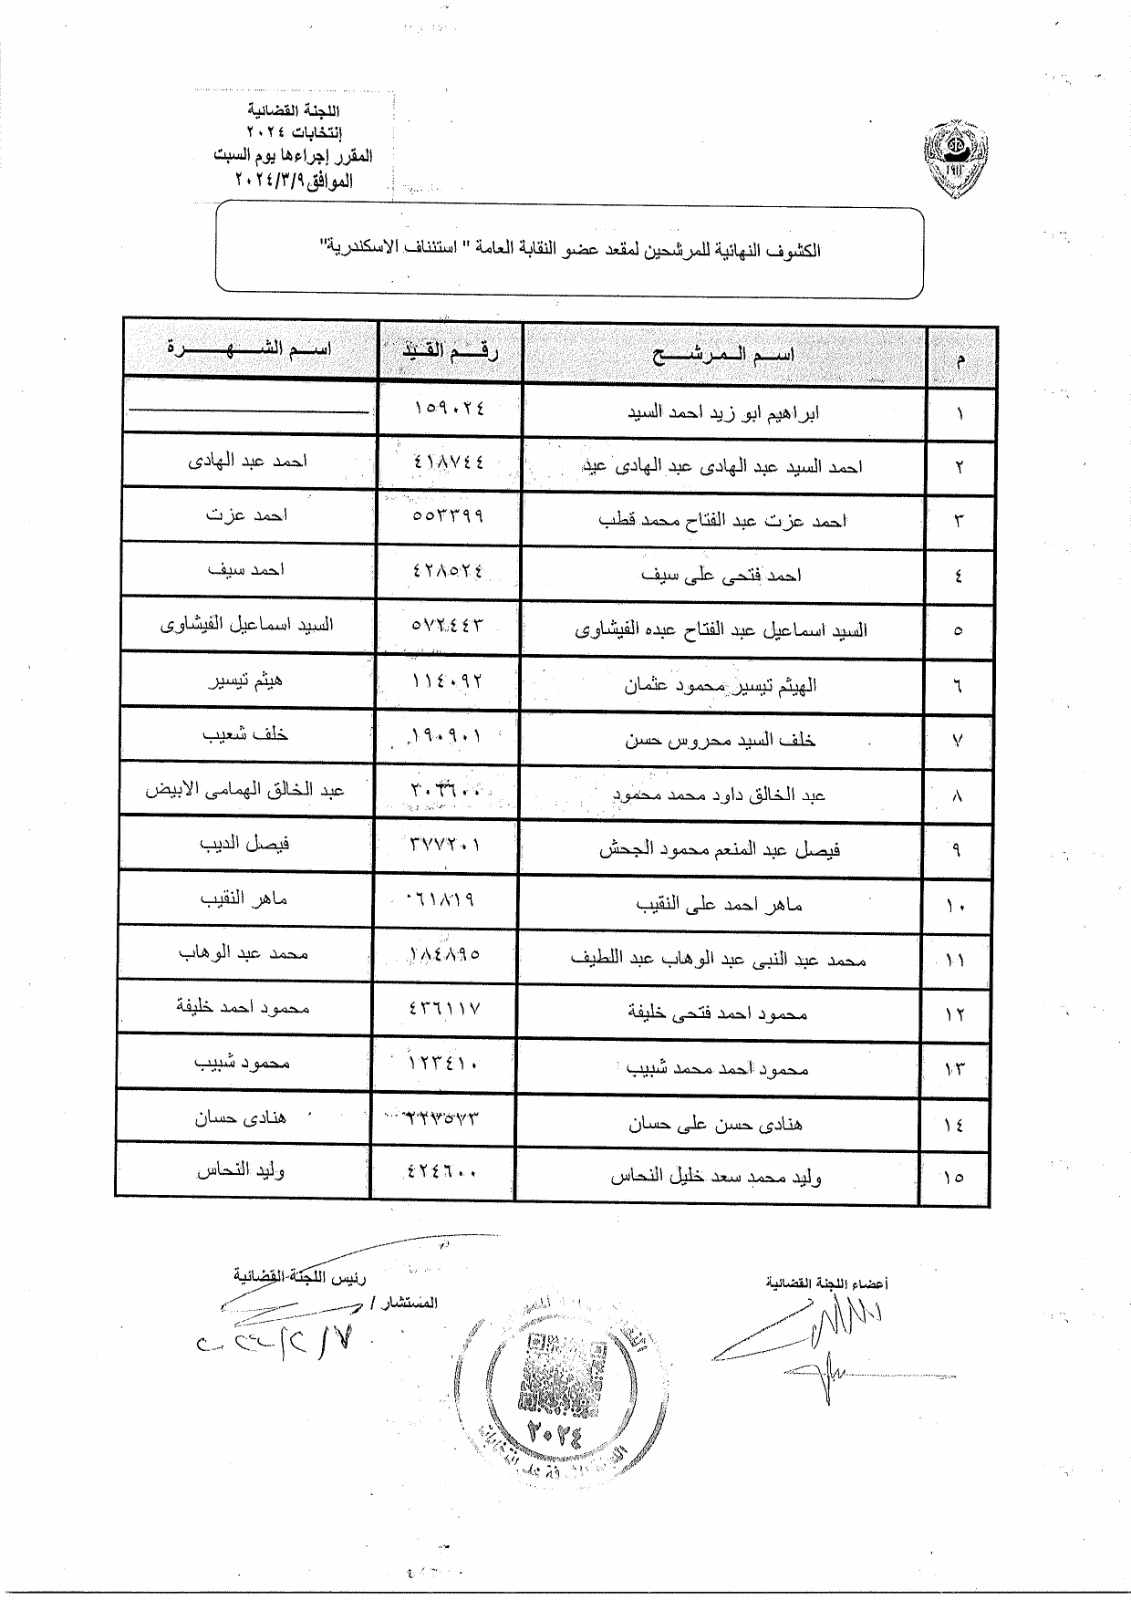 اللجنة القضائية
إنتخابات ٢٠٢٤
المقرر إجراءها يوم السبت
الموافق ٢٠٢٤/٣/٩
١٩١٢
الكشوف النهائية للمرشحين لمقعد عضو النقابة العامة " استئناف الاسكندرية"
م اســم الـمـرشـــح رقــم القـيـد اســم الشـــهـــــرة
١ ابراهيم ابو زيد احمد السيد ١٥٩٠٢٤
٢ احمد السيد عبد الهادى عبد الهادى عيد ٤١٨٧٤٤ احمد عبد الهادى
٣ احمد عزت عبد الفتاح محمد قطب ٥٥٣٣٩٩ احمد عزت
٤ احمد فتحى على سيف ٤٢٨٥٢٤ احمد سيف
٥ السيد اسماعيل عبد الفتاح عبده الفيشاوى ٥٧٢٤٤٣ السيد اسماعيل الفيشاوى
٦ الهيثم تيسير محمود عثمان ١١٤٠٩٢ هيثم تيسير
٧ خلف السيد محروس حسن ١٩٠٩٠١ خلف شعيب
٨ عبد الخالق داود محمد محمود عبد الخالق الهمامى الابيض
٩ فيصل عبد المنعم محمود الجحش ٣٧٧٢٠١ فيصل الديب
١٠ ماهر احمد على النقيب ٠٦١٨١٩ ماهر النقيب
١١ محمد عبد النبى عبد الوهاب عبد اللطيف ١٨٤٨٩٥ محمد عبد الوهاب
١٢ محمود احمد فتحى خليفة ٤٣٦١١٧ محمود احمد خليفة
١٣ محمود احمد محمد شبيب ١٢٣٤١٠ محمود شبيب
١٤ هنادى حسن على حسان ٢٢٧٥٧٣ هنادى حسان
١٥ وليد محمد سعد خليل النحاس ٤٢٤٦٠٠ وليد النحاس
أعضاء اللجنة القضائية
رئيس اللجنة القضائية
المستشار /
٢٠٢٤/٢/٧
٢٠٢٤